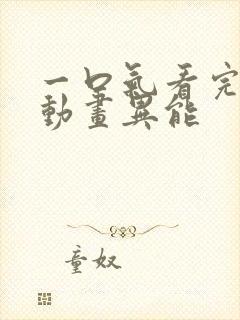 一口氣看完
動畫異能
童奴